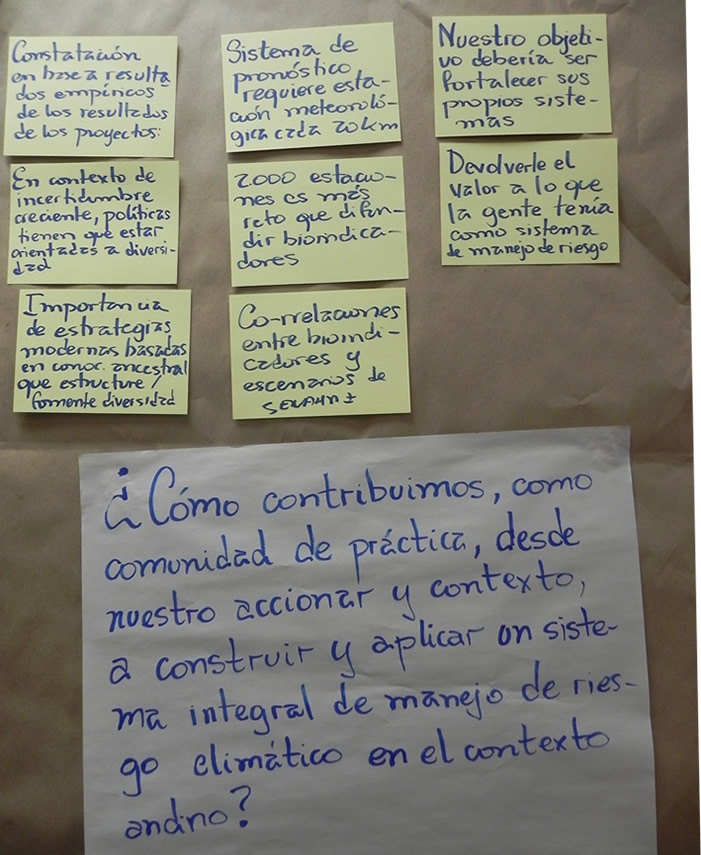 Constatación
en base a resulta
dos empíricos
de los resultados
de los proyectos:
En contexto de
incertidumbre
creciente, políticas
tienen que estar
orientadas a diversi-
dad
Importancia
de estrategias
modernas basadas
en conoc. ancestral
que estructure /
fomente diversidad
Sistema de
pronóstico
requiere esta-
ción meteoroló-
gica cada 20 km
2.000 estacio-
nes es más
reto que difun-
dir bioindica-
dores
Co-rrelaciones
entre bioindi-
cadores y
escenarios de
SENAMHI
Nuestro objeti-
vo debería ser
fortalecer sus
propios siste-
mas
Devolverle el
valor a lo que
la gente tenía
como sistema
de manejo de riesgo
¿Cómo contribuimos, como
comunidad de práctica, desde
nuestro accionar y contexto,
a construir y aplicar un siste-
ma integral de manejo de ries-
go climático en el contexto
andino?